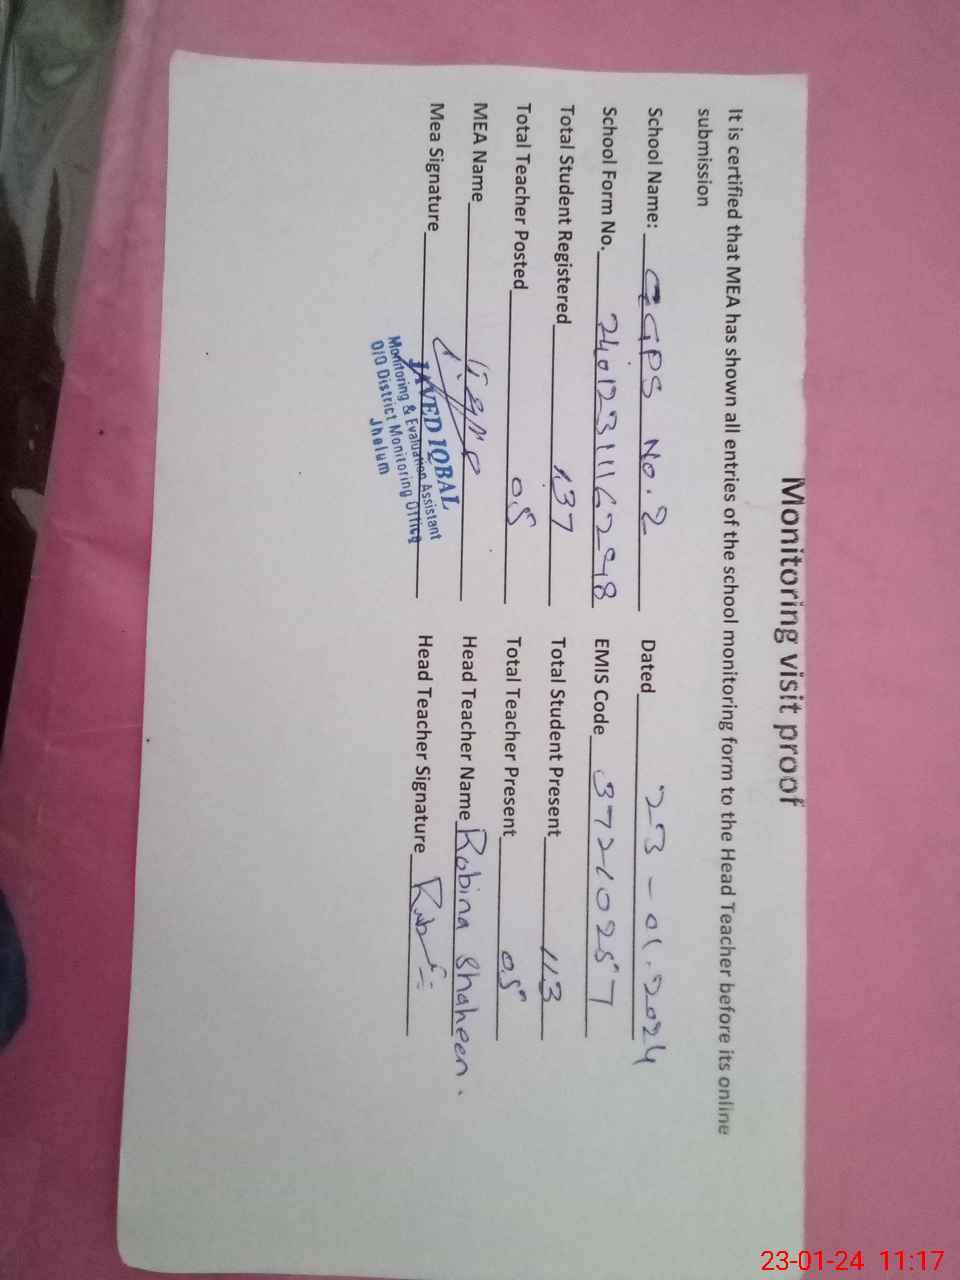 Monitoring visit proof
It is certified that MEA has shown all entries of the school monitoring form to the Head Teacher before its online
submission
School Name: GGPS No.2 Dated 23-01-2024
School Form No. 24012311162948 EMIS Code 37210257
Total Student Registered 137 Total Student Present 113
Total Teacher Posted 05 Total Teacher Present 05
MEA Name Head Teacher Name Robina Shaheen.
Mea Signature Head Teacher Signature
JAVED IQBAL
Monitoring & Evaluation Assistant
O/O District Monitoring Office
Jhelum
23-01-24 11:17